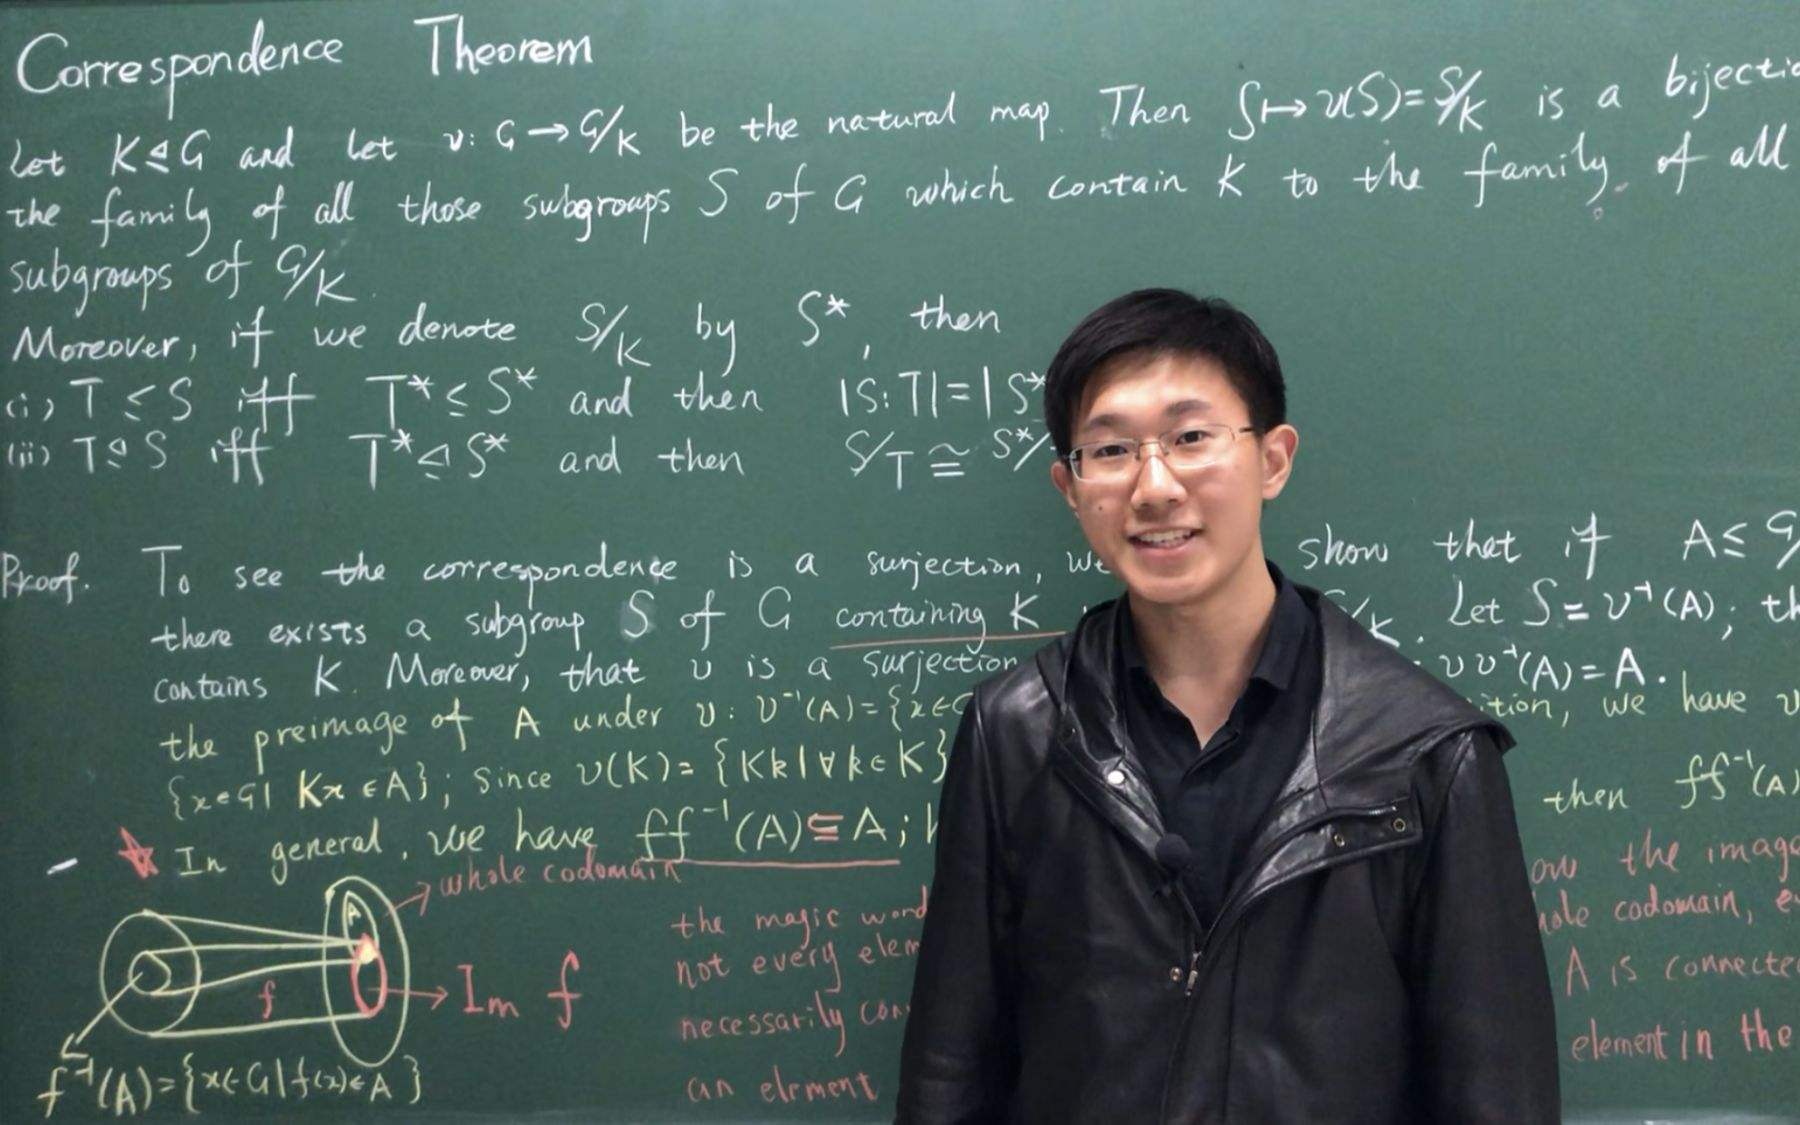 Correspondence Theorem
Let K⊴G and let ν: G→G/K be the natural map. Then S↦ν(S)=S/K is a bijectio
the family of all those subgroups S of G which contain K to the family of all
subgroups of G/K.
Moreover, if we denote S/K by S*, then
(i) T≤S iff T*≤S* and then |S:T|=|S*
(ii) T⊴S iff T*⊴S* and then S/T≅S*/
Proof. To see the correspondence is a surjection, we show that if A≤G/
there exists a subgroup S of G containing K /K. Let S=ν⁻¹(A); th
contains K. Moreover, that ν is a surjection νν⁻¹(A)=A.
the preimage of A under ν: ν⁻¹(A)={x∈G ition, we have ν
{x∈G| Kx∈A}; Since ν(K)={Kk|∀k∈K} then ff⁻¹(A)
☆ In general, we have ff⁻¹(A)⊆A;
whole codomain
A
f
Im f
f⁻¹(A)={x∈G|f(x)∈A}
the magic word ow the image
not every elem hole codomain, ev
necessarily con A is connecte
an elrment element in the